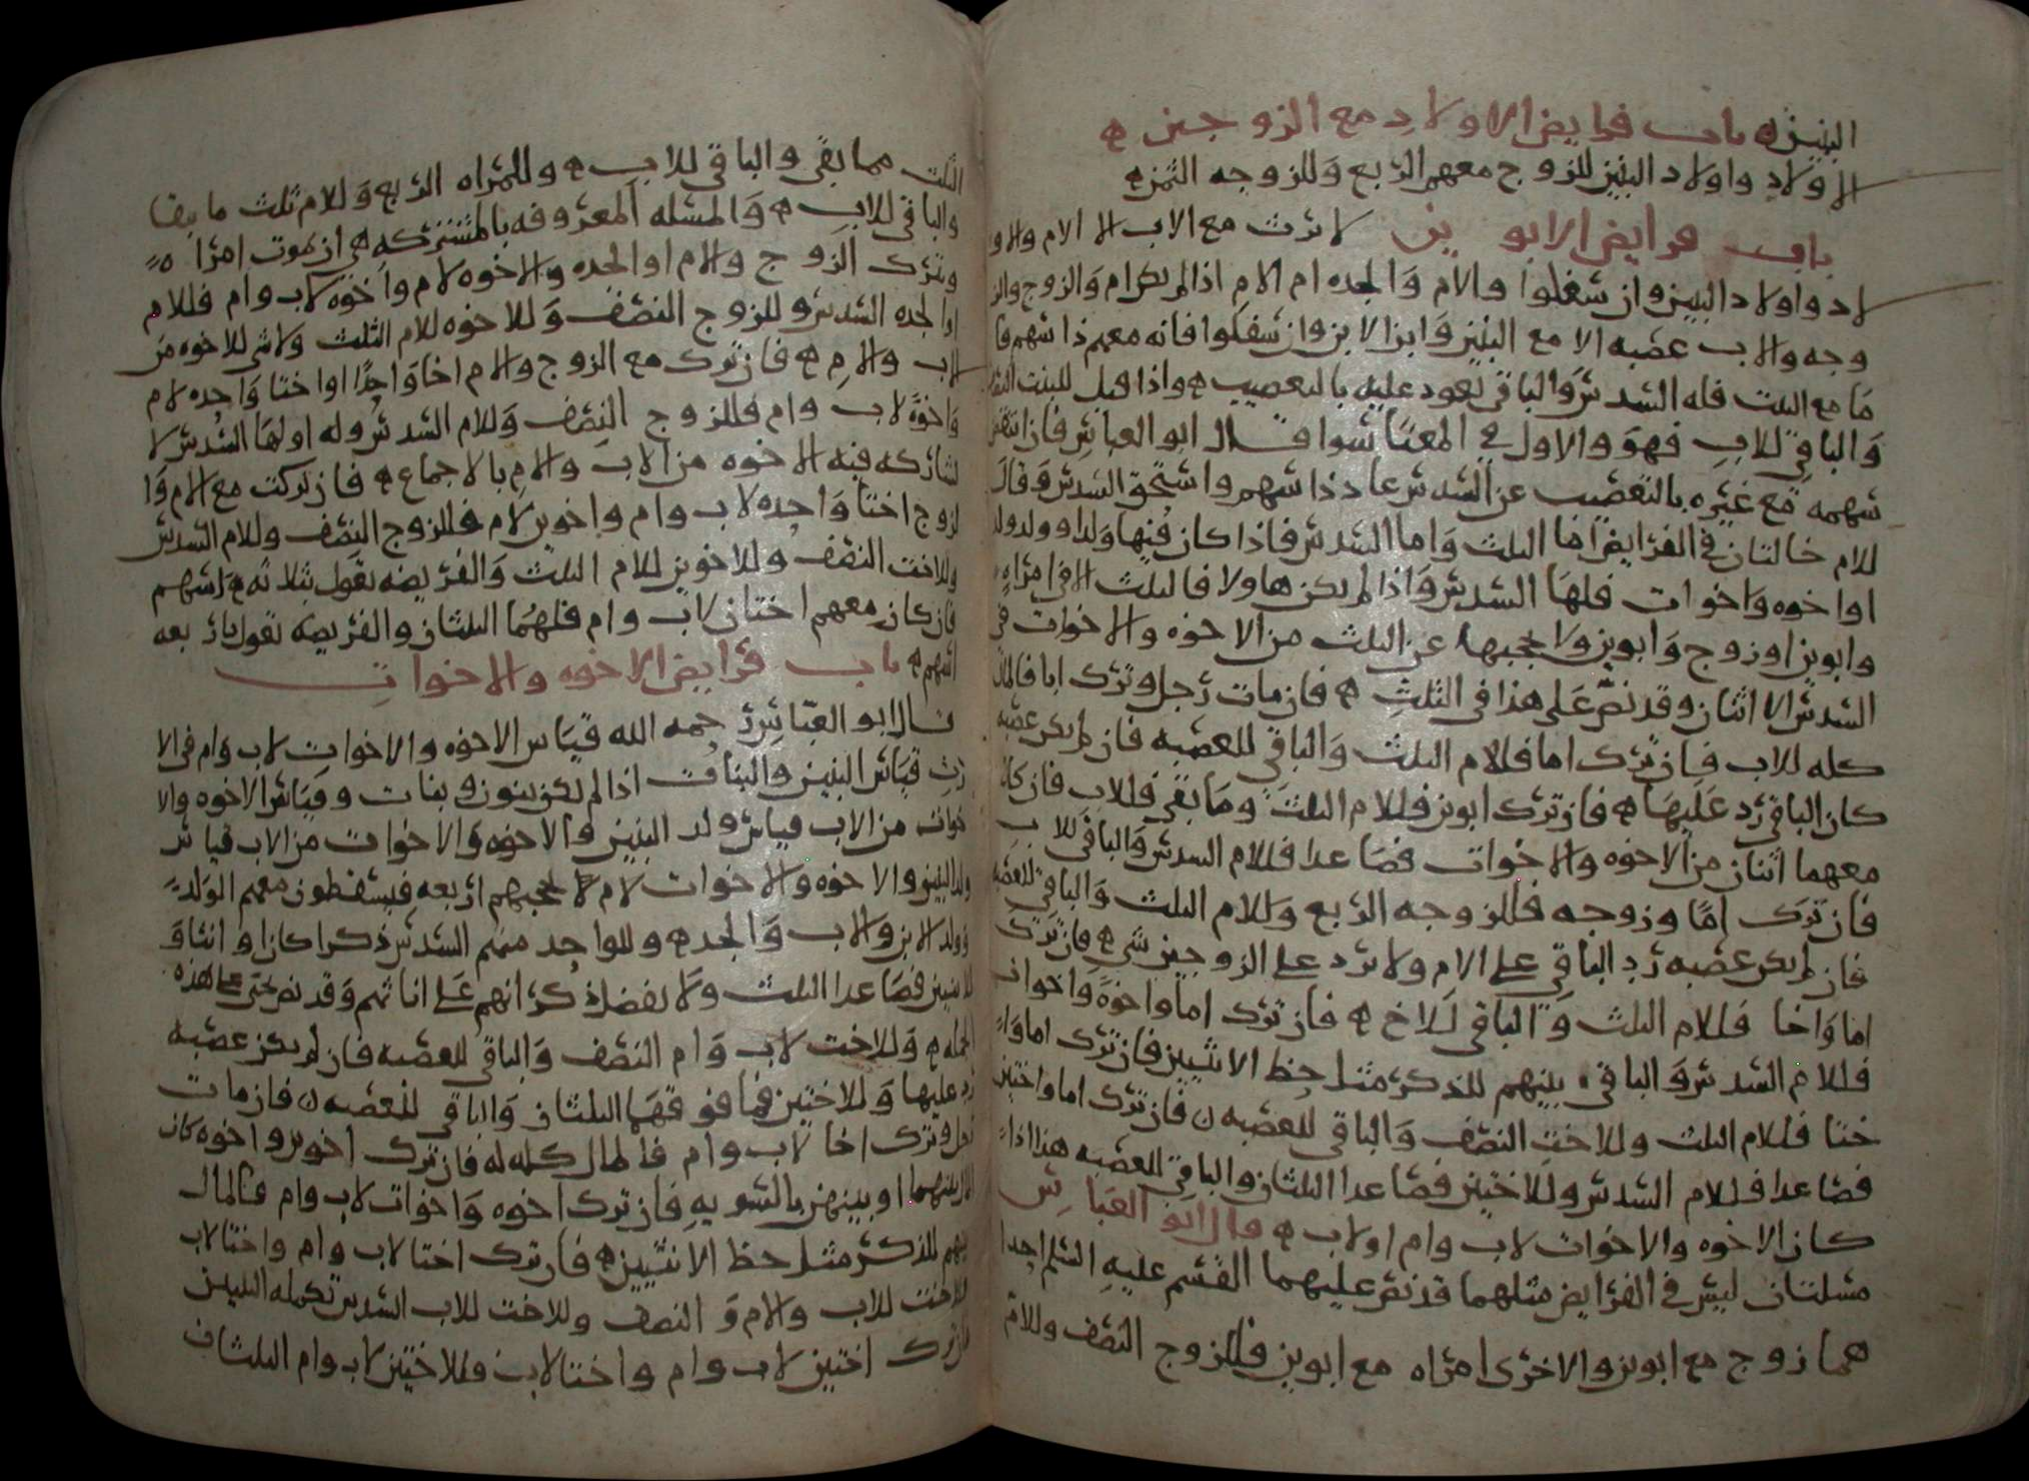 البنين ه باب فرايض الاولاد مع الزوجين ه
الاولاد واولاد البنين للزوج معهم الربع وللزوجه الثمن ه
باب فرايض الابوين لا يرث مع الاب الا الام والاو
لاد واولاد البنين وان سفلوا والام والجده ام الام اذا لم يكن ام والزوج والز
وجه والاب عصبه الا مع البنين وابن الابن وان سفلوا فانه معهم ذا سهم فا
ما مع البنت فله السدس والباقي يعود عليه بالتعصيب ه واذا قيل للبنت النصف
والباقي للاب فهو والاول في المعنا سوا قال ابو العباس فان انتقص
سهمه مع غيره بالتعصيب عن السدس عاد ذا سهم واستحق السدس وقال
للام حالتان في الفرايض اما الثلث واما السدس فاذا كان فيها ولد او ولد ولد
او اخوه واخوات فلها السدس واذا لم يكن هاولا فالثلث الا في امراه
وابوين او زوج وابوين ولا يحجبها عن الثلث من الاخوه والاخوات في
السدس الا اثنان وقد نص على هذا في الثلث ه فان مات رجل وترك ابا فالمال
كله للاب فان ترك اما فللام الثلث والباقي للعصبه فان لم يكن عصبه
كان الباقي رد عليها ه فان ترك ابوين فللام الثلث وما بقي فللاب فان كان
معهما اثنان من الاخوه والاخوات فصاعدا فللام السدس والباقي للاب
فان ترك اما وزوجه فللزوجه الربع وللام الثلث والباقي للعصبه
فان لم يكن عصبه رد الباقي على الام ولا يرد على الزوجين شي ه فان ترك
اما واخا فللام الثلث والباقي للاخ ه فان ترك اما واخوة واخوات
فللام السدس والباقي بينهم للذكر مثل حظ الانثيين فان ترك اما وا
ختا فللام الثلث وللاخت النصف والباقي للعصبه ن فان ترك اما واختين
فصاعدا فللام السدس وللاختين فصاعدا الثلثان والباقي للعصبه هذا اذا
كان الاخوه والاخوات لاب وام او لاب ه قال ابو العباس
مسلتان ليس في الفرايض مثلهما قد نص عليهما القسم عليه السلم احدا
هما زوج مع ابوين والاخرى امراه مع ابوين فللزوج النصف وللام
الثلث مما بقي والباقي للاب ه وللمراه الربع وللام ثلث ما بقا
والباقي للاب ه والمسله المعروفه بالمشتركه هي ان تموت امراه
وتترك الزوج والام او الجده والاخوه لام واخوه لاب وام فللام
او الجده السدس وللزوج النصف وللاخوه للام الثلث ولا شي للاخوه من
لاب والام ه فان ترك مع الزوج والام اخا واحدا او اختا واحده لام
واخوة لاب وام فللزوج النصف وللام السدس وله او لها السدس لا
يشاركه فيه الاخوه من الاب والام بالاجماع ه فان تركت مع الام وا
لزوج اختا واحده لاب وام واخوين لام فللزوج النصف وللام السدس
وللاخت النصف وللاخوين للام الثلث والفريضه تعول بثلاثه اسهم
فان كان معهم اختان لاب وام فلهما الثلثان والفريضه تعول باربعه
اسهم ه باب فرايض الاخوه والاخوات
قال ابو العباس رحمه الله قياس الاخوه والاخوات لاب وام في الا
رث قياس البنين والبنات اذا لم يكن بنون وبنات وقياس الاخوه والا
خوات من الاب قياس ولد البنين والاخوه والاخوات من الاب قياس
ولد البنين والاخوه والاخوات لام يحجبهم اربعه فيسقطون معهم الولد
وولد الابن والاب والجد ه وللواحد منهم السدس ذكرا كان او انثا و
للاثنين فصاعدا الثلث ولا يفضل ذكرانهم على اناثهم وقد نص يحيى على هذه
الجمله ه وللاخت لاب وام النصف والباقي للعصبه فان لم يكن عصبه
رد عليها وللاختين فما فوقهما الثلثان والباقي للعصبه ن فان مات
رجل وترك اخا لاب وام فالمال كله له فان ترك اخوين واخوه كان
المال بينهما او بينهن بالسويه فان ترك اخوه واخوات لاب وام فالمال
بينهم للذكر مثل حظ الانثيين ه فان ترك اختا لاب وام واختا لاب
فللاخت للاب والام و النصف وللاخت للاب السدس تكمله الثلثين
فان ترك اختين لاب وام واختا لاب فللاختين لاب وام الثلثان